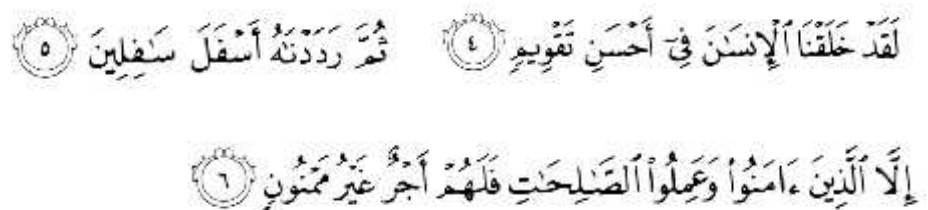 لَقَدْ خَلَقْنَا ٱلْإِنسَٰنَ فِىٓ أَحْسَنِ تَقْوِيمٍ ٤ ثُمَّ رَدَدْنَٰهُ أَسْفَلَ سَٰفِلِينَ ٥
إِلَّا ٱلَّذِينَ ءَامَنُوا۟ وَعَمِلُوا۟ ٱلصَّٰلِحَٰتِ فَلَهُمْ أَجْرٌ غَيْرُ مَمْنُونٍ ٦